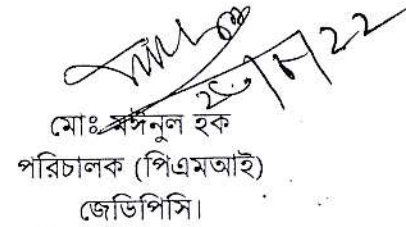 মোঃ মঈনুল হক
পরিচালক (পিএমআই)
জেডিপিসি।